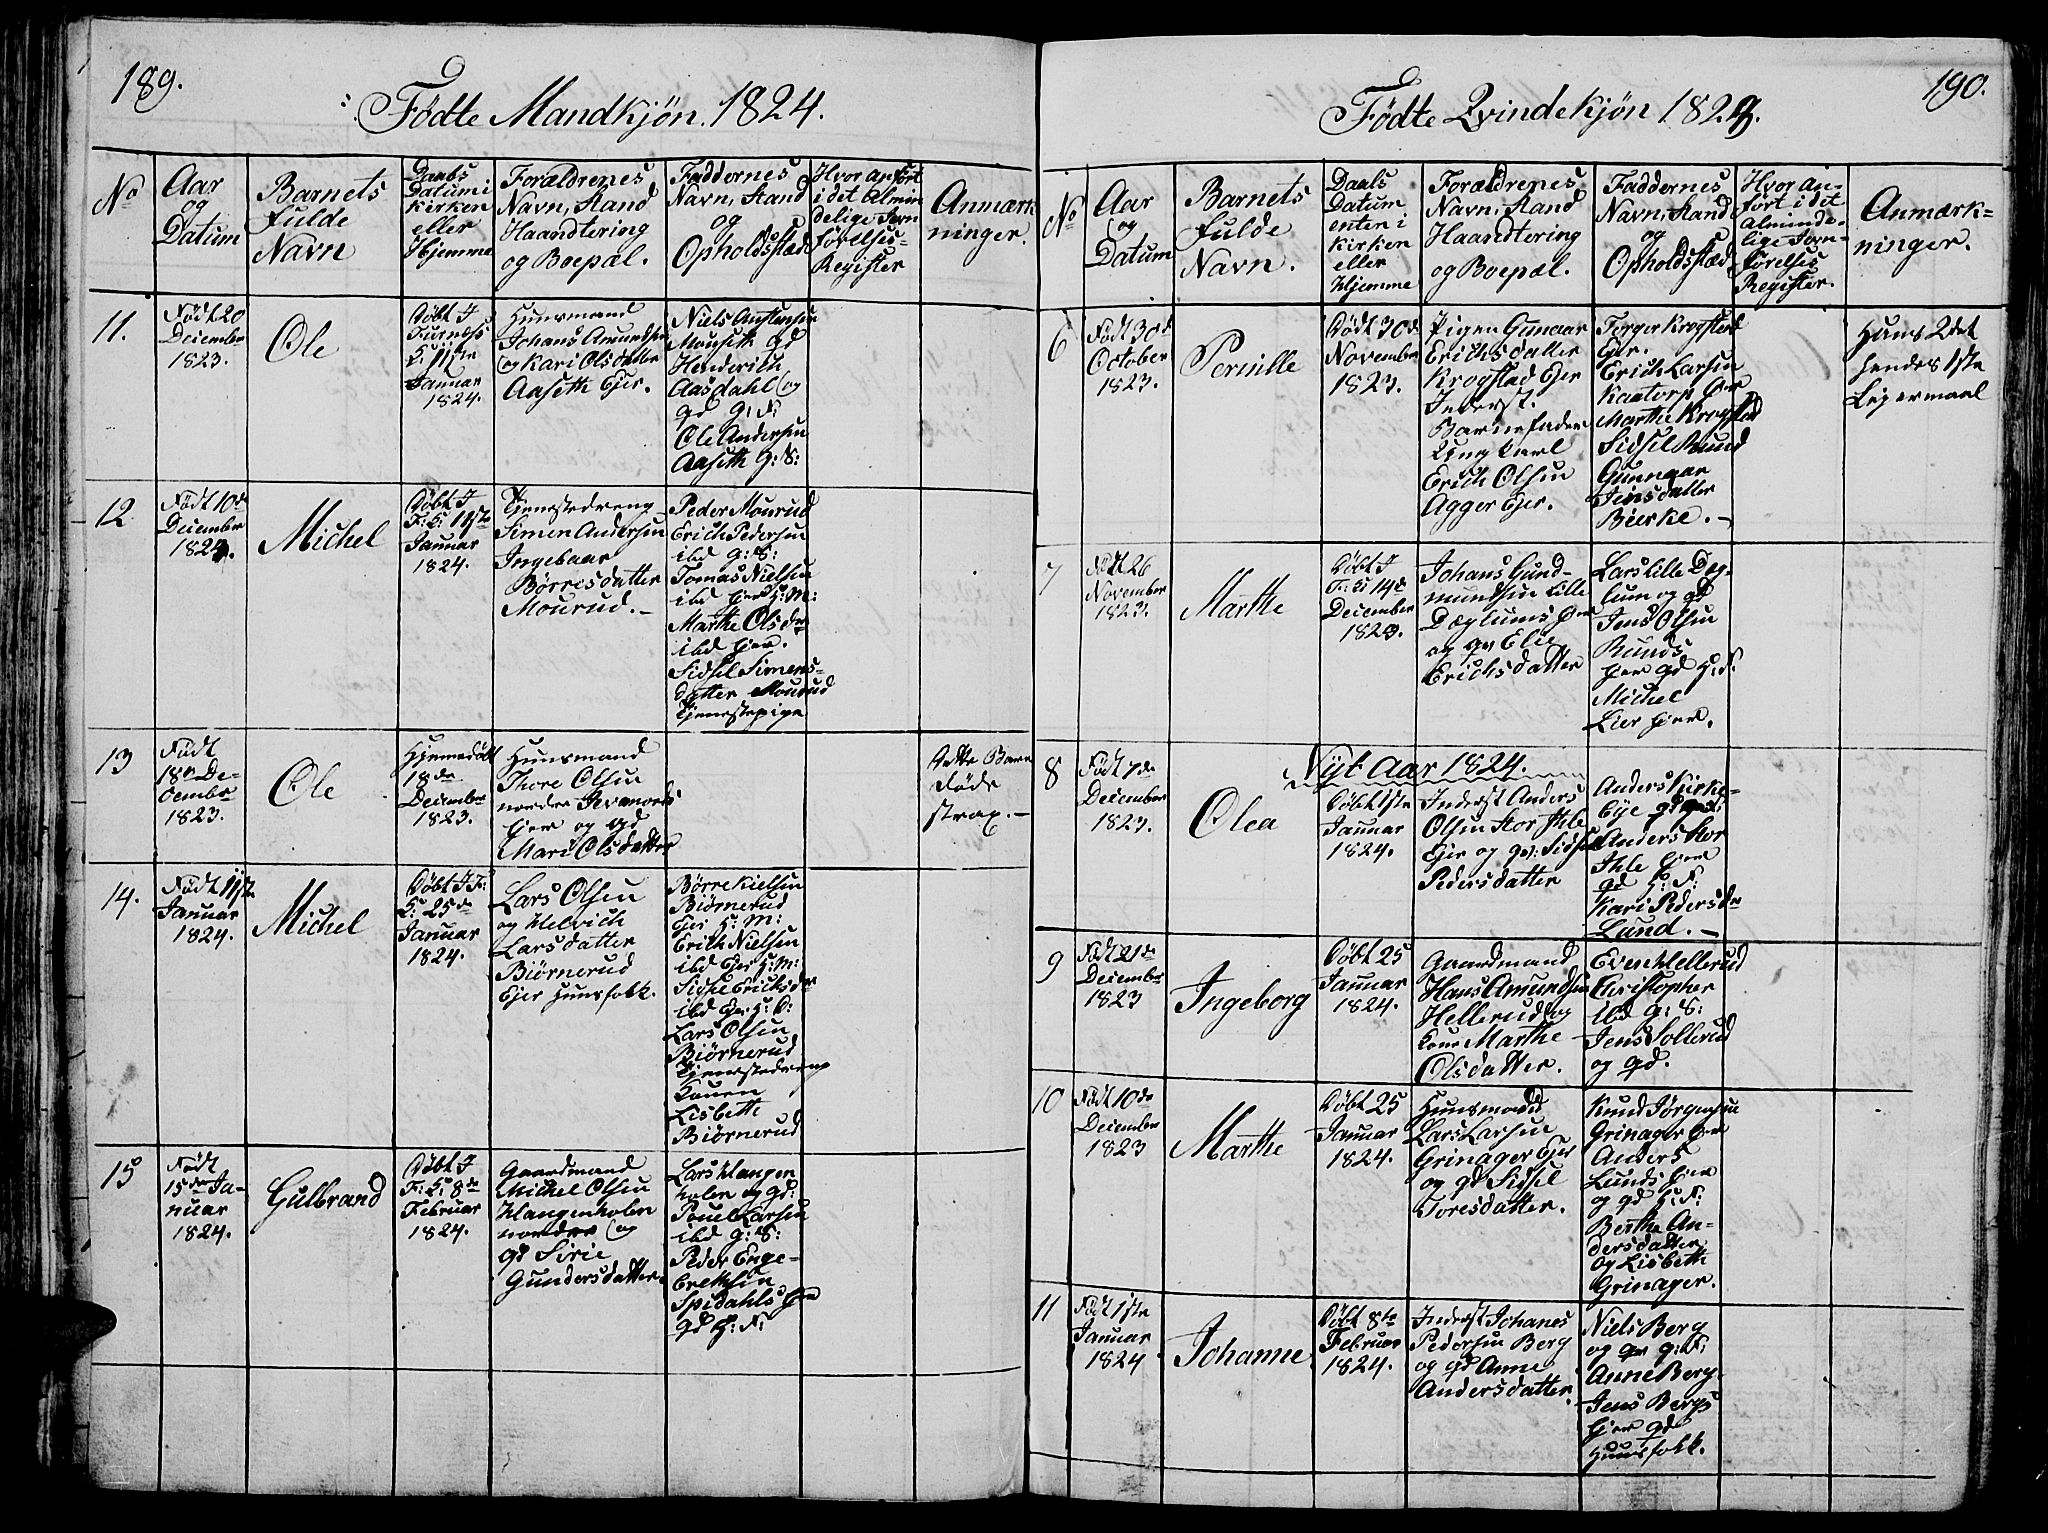 189.
Fødte Mandkjøn. 1824.
No
Aar
og
Datum
Barnets
fulde
Navn
Daabs
Datum i
Kirken
eller
Hjemme
Forældrenes
Navn, Stand
Haandtering
og Boepæl.
Faddernes
Navn, Stand
og
Opholdsstæd
Hvor anført
i det Almin
delige Jevn
førelses-
Register
Anmærk
ninger.
11.
Født 20
December
1823.
Ole
Døbt I
Furnæss
K: 11te
Januar
1824.
Huusmand
Johans Amundsen
og Kari Olsdatter
Aaseth Ejer.
Niels Austensen
Monseth gd
Henderich
Aasdahl og
gd g: F:
Ole Andersen
Aaseth g: S:
12
Født 10de
December
1823.
Michel
Døbt I
F: K: 11te
Januar
1824.
Tjenestedreng
Simen Andersen
Ingebaar
Børresdatter
Mourud.-
Peder Mourud
Erich Pedersen
ibd g: S:
Tomas Nielsen
ibd Ejer H: M:
Marthe Olsdr
ibd Ejer.
Sidsel Simens-
datter Mourud
Tjenestepige
13
Født
18de De-
cember
1823.
Ole
Hjemedøbt
18de
December
1823.
Huusmand
Thore Olsen
nordre
Ejer og gd
Mari Olsdatter
dette Barn
døde
strax.-
14.
Født 11te
Januar
1824.
Michel
Døbt I F:
K: 25de
Januar
1824.
Lars Olsen
og Helvich
Larsdatter
Biørnerud
Ejer Huusfolk.
Børre Kielsen
Biørnerud
Ejer H: M:
Erich Nielsen
ibd Ejer H: M:
Sidse Ericksdr
ibd Ejer H: D:
Lars Olsen
Biørnerud
Tjenestedreng
Konen
Lisbette
Biørnerud
15
Født
15de Ja-
nuar
1824.
Gulbrand
Døbt I
F: K: 8de
Februar
1824.
Gaardmand
Michel Olsen
Klangenholen
nordre og
gd Sirie
Gundersdatter.
Lars Klangen
holen og gd:
Pouel Larsen
ibd g: S:
Peder Enge-
brethsen
Spidahls Ejer
gd H: F:
190.
Fødte Qvindekjøn 1824.
No
Aar
og
Datum
Barnets
fulde
Navn.
Daabs
Datum
enten i
Kirken
eller
Hjemme
Forældrenes
Navn, Stand
Haandtering
og Boepæl.
Faddernes
Navn, Stand
og
Opholdsstæd
Hvor an-
ført i det
Alminde-
lige Jevn-
førelses
Register.
Anmærk-
ninger.
6
Født 30de
October
1823.
Pernille
Døbt 30de
November
1823.
Pigen Gunaar
Erichsdatter
Krogstad Ejer
Inderst.
Barnefader
Ungkarl
Erich Olsen
Agger Ejer.
Torger Krogstad
Ejer.
Erich Larsen
Kaatorp Ejer
Marthe Krogstad
Sidsel Ruud
Gunnaar
Jensdatter
Bierke.-
Hans 2det
Hendes 1ste
Lejermaal
7
Født 26
November
1823.
Marthe
Døbt I
F: K: 14de
December
1823.
Johans Gund-
mundsen Lille
Dæglums Ejer
og gv Elie
Erichsdatter
Lars Lille Dæg-
lum og gd
Jens Olsen
Runds
Ejer gd H: F:
Michel
Lier Ejer.
Nyt Aar 1824.
8
Født 7de
December
1823.
Olea
Døbt 1ste
Januar
1824.
Inderst Anders
Olsen Stor Ihle
Ejer og gv: Sidsel
Pedersdatter
Anders Kirke-
bye gd g: F:
Anders Stor
Ihle Ejer
gd H: F:
Kari Pedersdr
Lund.-
9
Født 21de
December
1823
Ingeborg
Døbt 25
Januar
1824.
Gaardmand
Hans Amundsen
Hellerud og
Kone Marthe
Olsdatter.
Even Hellerud
Christopher
ibd g: S:
Jens Sollerud
og gd.
10
Født 10de
December
1823
Marthe
Døbt 25
Januar
1824.
Huusmand
Lars Larsen
Grinager Ejer
og gd Sidsel
Toresdatter.
Knud Jørgensen
Grinager Ejer
Anders
Lunds Ejer
og gd H: F:
Berthe An-
dersdatter
og Lisbeth
Grinager.
11
Født 1ste
Januar
1824
Johanne
Døbt 8te
Februar
1824.
Inderst Johanes
Pedersen Berg
og gd Anne
Andersdatter.
Niels Berg
og gv g: F:
Anne Berg.
Jens Bergs
Ejer gd
Huusfolk.